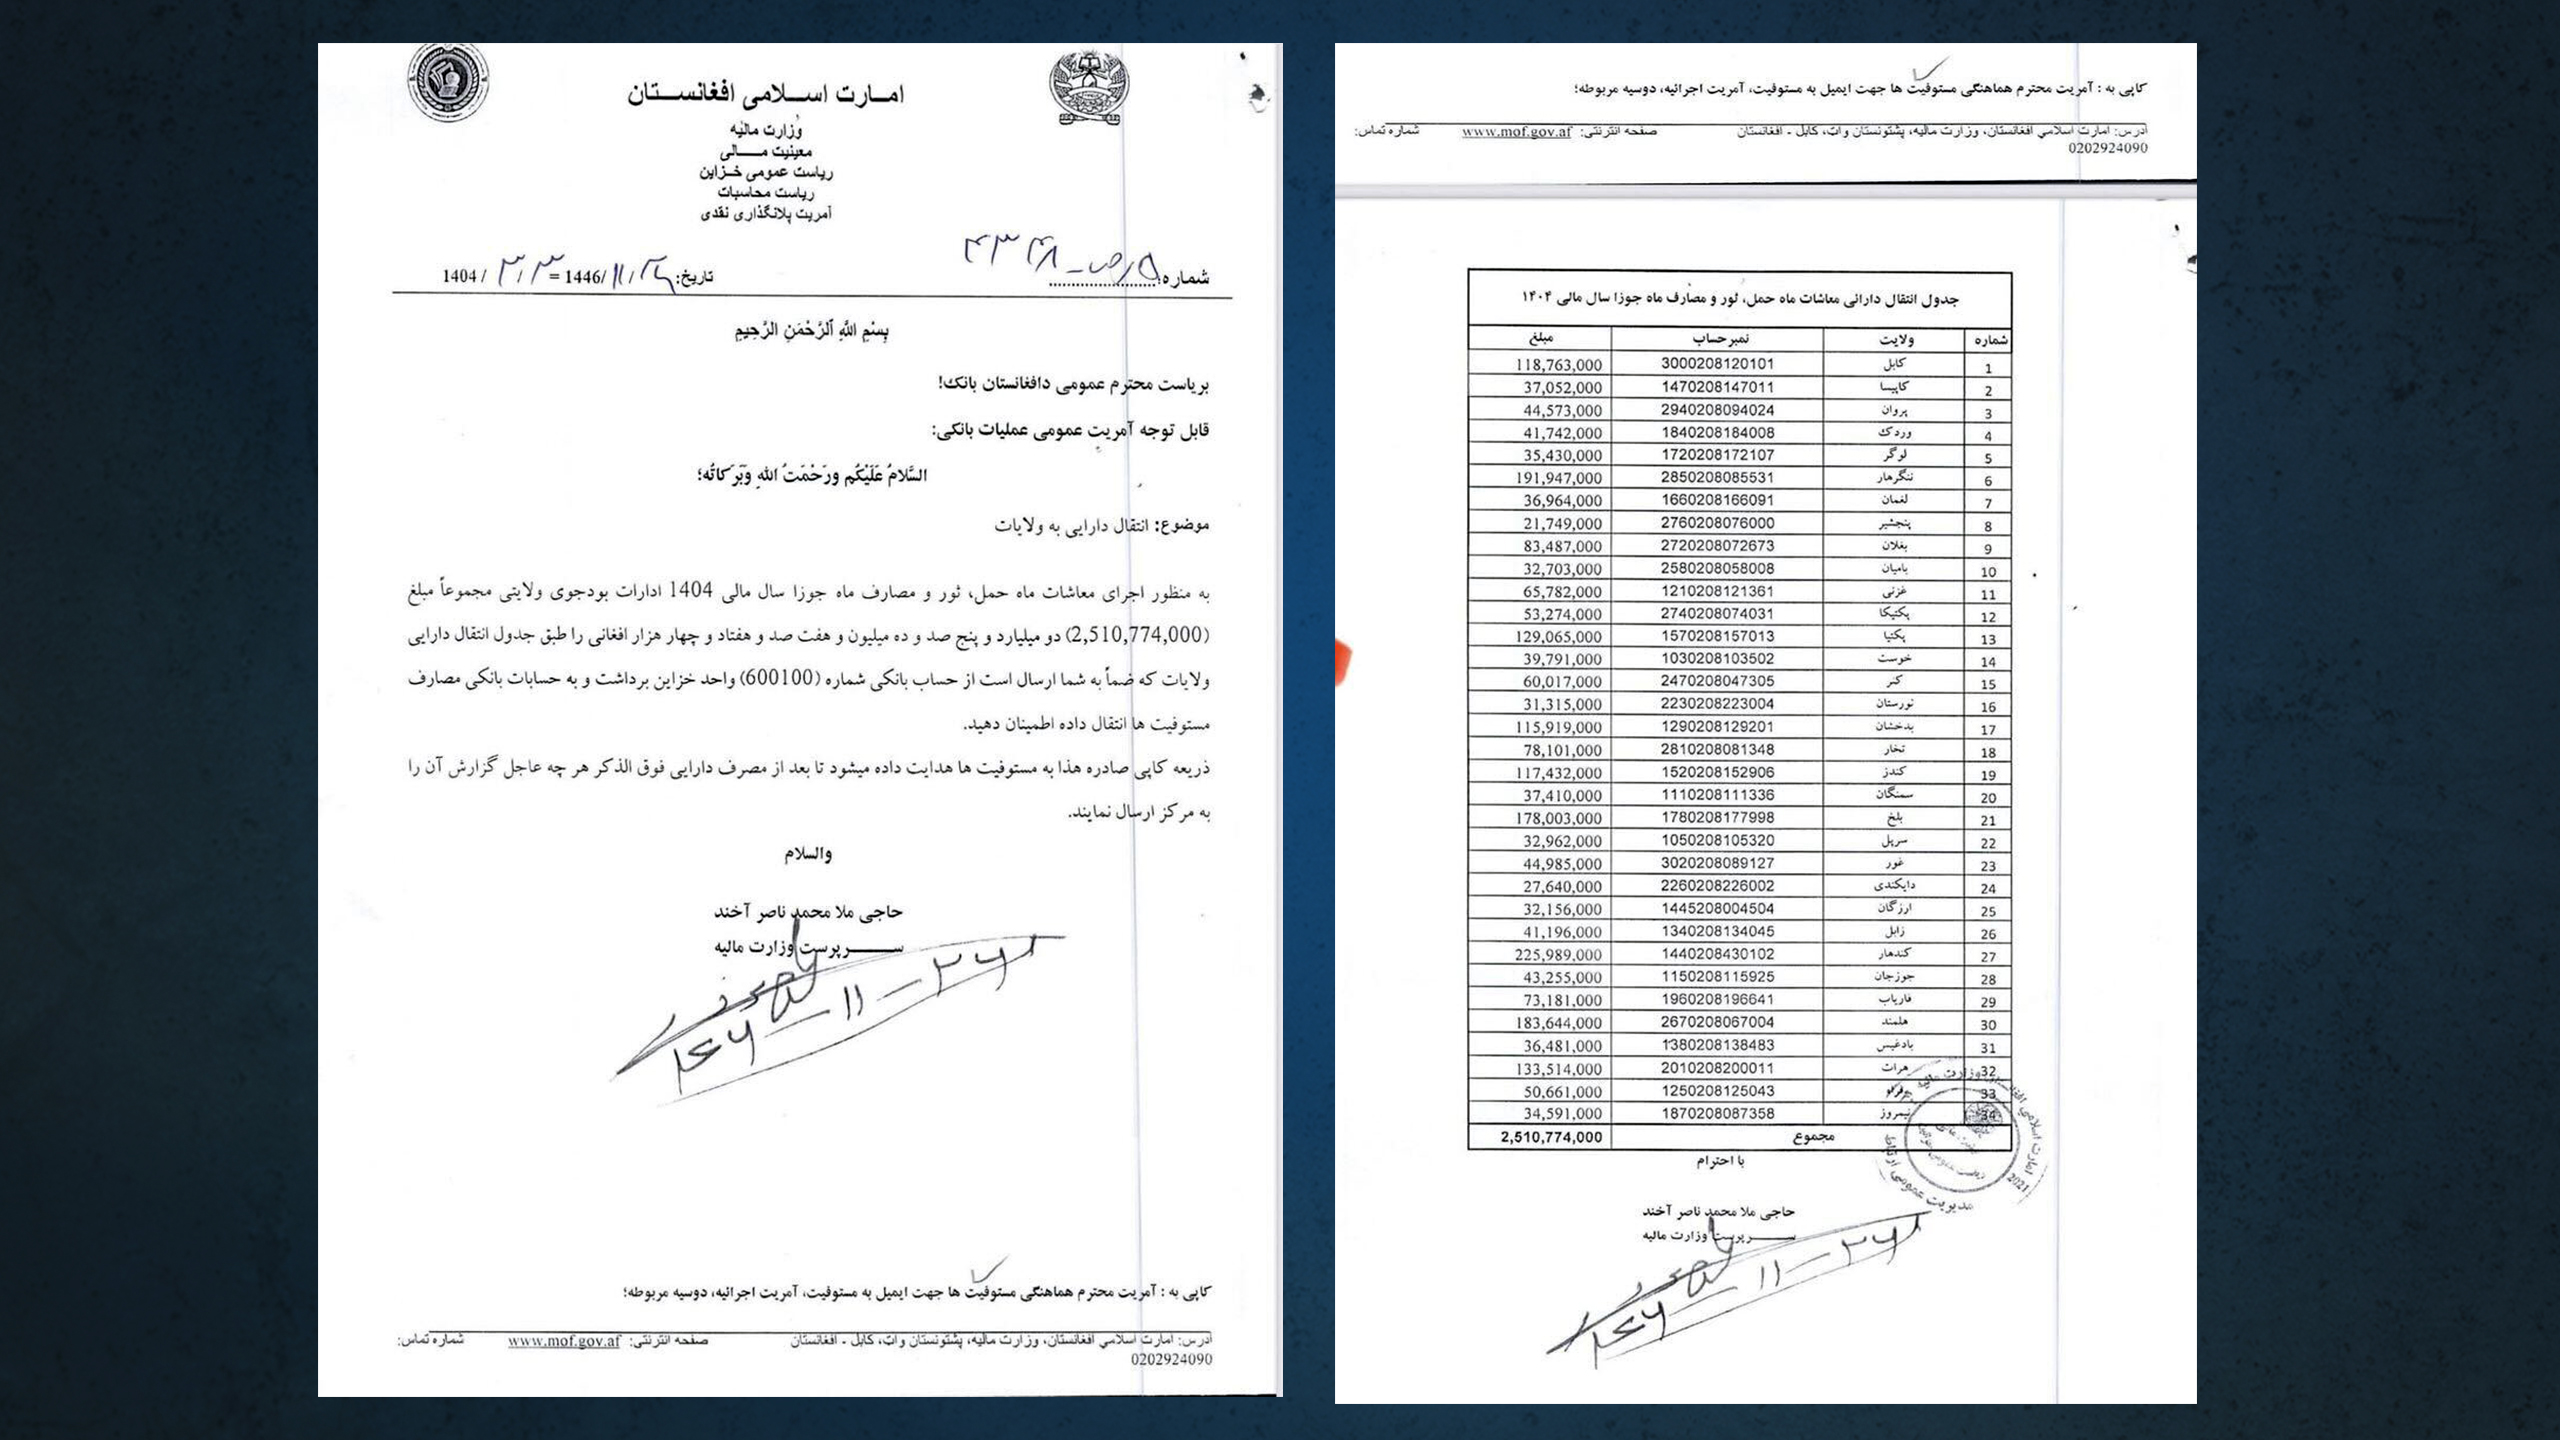 امارت اسلامی افغانستان
وزارت مالیه
معینیت مالی
ریاست عمومی خزاین
ریاست محاسبات
آمریت پلانگذاری نقدی
شماره:
تاریخ: 1446/11/26 = 1404/3/3
بِسْمِ اللَّهِ ٱلرَّحْمَنِ الرَّحِيمِ
بریاست محترم عمومی دافغانستان بانک!
قابل توجه آمریت عمومی عملیات بانکی:
السَّلامُ عَلَيْكُم ورَحْمَتُ اللهِ وَبَرَكاتُه؛
موضوع: انتقال دارایی به ولایات
به منظور اجرای معاشات ماه حمل، ثور و مصارف ماه جوزا سال مالی 1404 ادارات بودجوی ولایتی مجموعاً مبلغ
(2,510,774,000) دو میلیارد و پنج صد و ده میلیون و هفت صد و هفتاد و چهار هزار افغانی را طبق جدول انتقال دارایی
ولایات که ضماً به شما ارسال است از حساب بانکی شماره (600100) واحد خزاین برداشت و به حسابات بانکی مصارف
مستوفیت ها انتقال داده اطمینان دهید.
ذریعه کاپی صادره هذا به مستوفیت ها هدایت داده میشود تا بعد از مصرف دارایی فوق الذکر هر چه عاجل گزارش آن را
به مرکز ارسال نمایند.
والسلام
حاجی ملا محمد ناصر آخند
سرپرست وزارت مالیه
کاپی به : آمریت محترم هماهنگی مستوفیت ها جهت ایمیل به مستوفیت، آمریت اجرائیه، دوسیه مربوطه؛
آدرس: امارت اسلامی افغانستان، وزارت مالیه، پشتونستان وات، کابل - افغانستان صفحه انترنتی: www.mof.gov.af شماره تماس:
0202924090
کاپی به : آمریت محترم هماهنگی مستوفیت ها جهت ایمیل به مستوفیت، آمریت اجرائیه، دوسیه مربوطه؛
آدرس: امارت اسلامی افغانستان، وزارت مالیه، پشتونستان وات، کابل - افغانستان صفحه انترنتی: www.mof.gov.af شماره تماس:
0202924090
جدول انتقال دارائی معاشات ماه حمل، ثور و مصارف ماه جوزا سال مالی ۱۴۰۴
شماره ولایت نمبرحساب مبلغ
1 کابل 3000208120101 118,763,000
2 کاپیسا 1470208147011 37,052,000
3 پروان 2940208094024 44,573,000
4 وردک 1840208184008 41,742,000
5 لوگر 1720208172107 35,430,000
6 ننگرهار 2850208085531 191,947,000
7 لغمان 1660208166091 36,964,000
8 پنجشیر 2760208076000 21,749,000
9 بغلان 2720208072673 83,487,000
10 بامیان 2580208058008 32,703,000
11 غزنی 1210208121361 65,782,000
12 پکتیکا 2740208074031 53,274,000
13 پکتیا 1570208157013 129,065,000
14 خوست 1030208103502 39,791,000
15 کنر 2470208047305 60,017,000
16 نورستان 2230208223004 31,315,000
17 بدخشان 1290208129201 115,919,000
18 تخار 2810208081348 78,101,000
19 کندز 1520208152906 117,432,000
20 سمنگان 1110208111336 37,410,000
21 بلخ 1780208177998 178,003,000
22 سرپل 1050208105320 32,962,000
23 غور 3020208089127 44,985,000
24 دایکندی 2260208226002 27,640,000
25 ارزگان 1445208004504 32,156,000
26 زابل 1340208134045 41,196,000
27 کندهار 1440208430102 225,989,000
28 جوزجان 1150208115925 43,255,000
29 فاریاب 1960208196641 73,181,000
30 هلمند 2670208067004 183,644,000
31 بادغیس 1380208138483 36,481,000
32 هرات 2010208200011 133,514,000
33 1250208125043 50,661,000
34 نیمروز 1870208087358 34,591,000
مجموع 2,510,774,000
با احترام
حاجی ملا محمد ناصر آخند
سرپرست وزارت مالیه